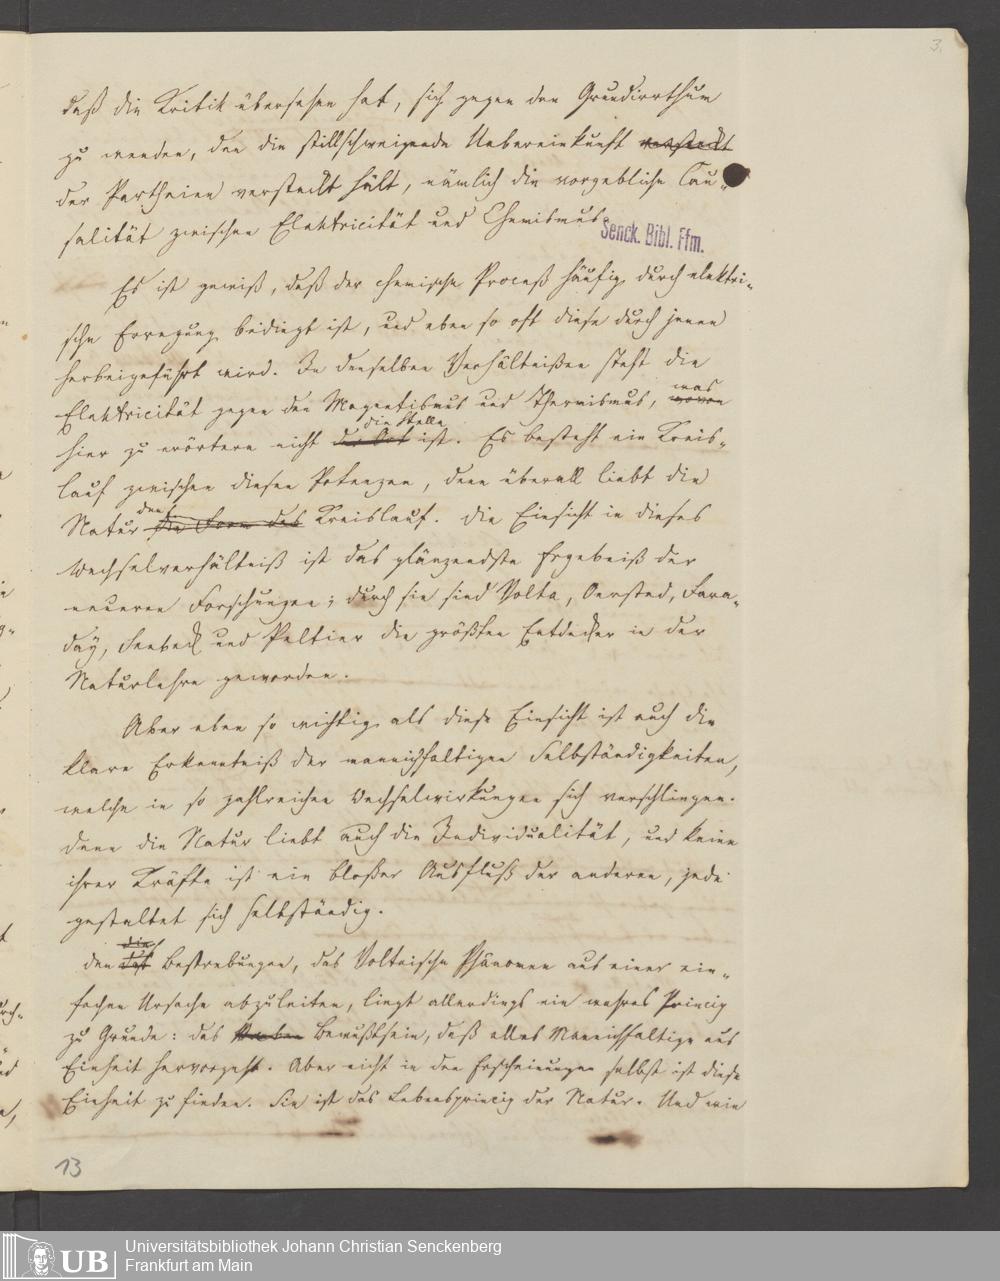 3.
daß die Kritik übersehen hat, sich gegen den Grundirrthum
zu wenden, den die stillschweigende Uebereinkunft versteckt
der Partheien versteckt hält, nämlich die vorgebliche Cau-
salität zwischen Elektricität und Chemismus.
Senck. Bibl. Ffm.
Es ist gewiß, daß der chemische Proceß häufig durch elektri-
sche Erregung bedingt ist, und eben so oft diese durch jenen
herbeigeführt wird. In denselben Verhältnißen steht die
Elektricität gegen den Magnetismus und Thermismus, wovon was
hier zu erörtern nicht der Ort die Stelle ist. Es besteht ein Kreis-
lauf zwischen diesen Potenzen, denn überall liebt die
Natur die Form des den Kreislauf. Die Einsicht in dieses
Wechselverhältniß ist das glänzendste Ergebniß der
neueren Forschungen; durch sie sind Volta, Oersted, Fara-
day, Seebeck und Peltier die größten Entdecker in der
Naturlehre geworden.
Aber eben so wichtig als diese Einsicht ist auch die
klare Erkenntniß der mannichfaltigen Selbständigkeiten,
welche in so zahlreichen Wechselwirkungen sich verschlingen.
Denn die Natur liebt auch die Individualität, und keine
ihrer Kräfte ist ein bloßer Ausfluß der anderen, jede
gestaltet sich selbständig.
Den die Bestrebungen, das Voltaische Phänomen aus einer ein-
fachen Ursache abzuleiten, liegt allerdings ein wahres Princip
zu Grunde: das Bewußtsein, daß alles Mannichfaltige aus
Einheit hervorgeht. Aber nicht in den Erscheinungen selbst ist diese
Einheit zu finden. Sie ist das Lebensprincip der Natur. Und wie
13
UB
Universitätsbibliothek Johann Christian Senckenberg
Frankfurt am Main